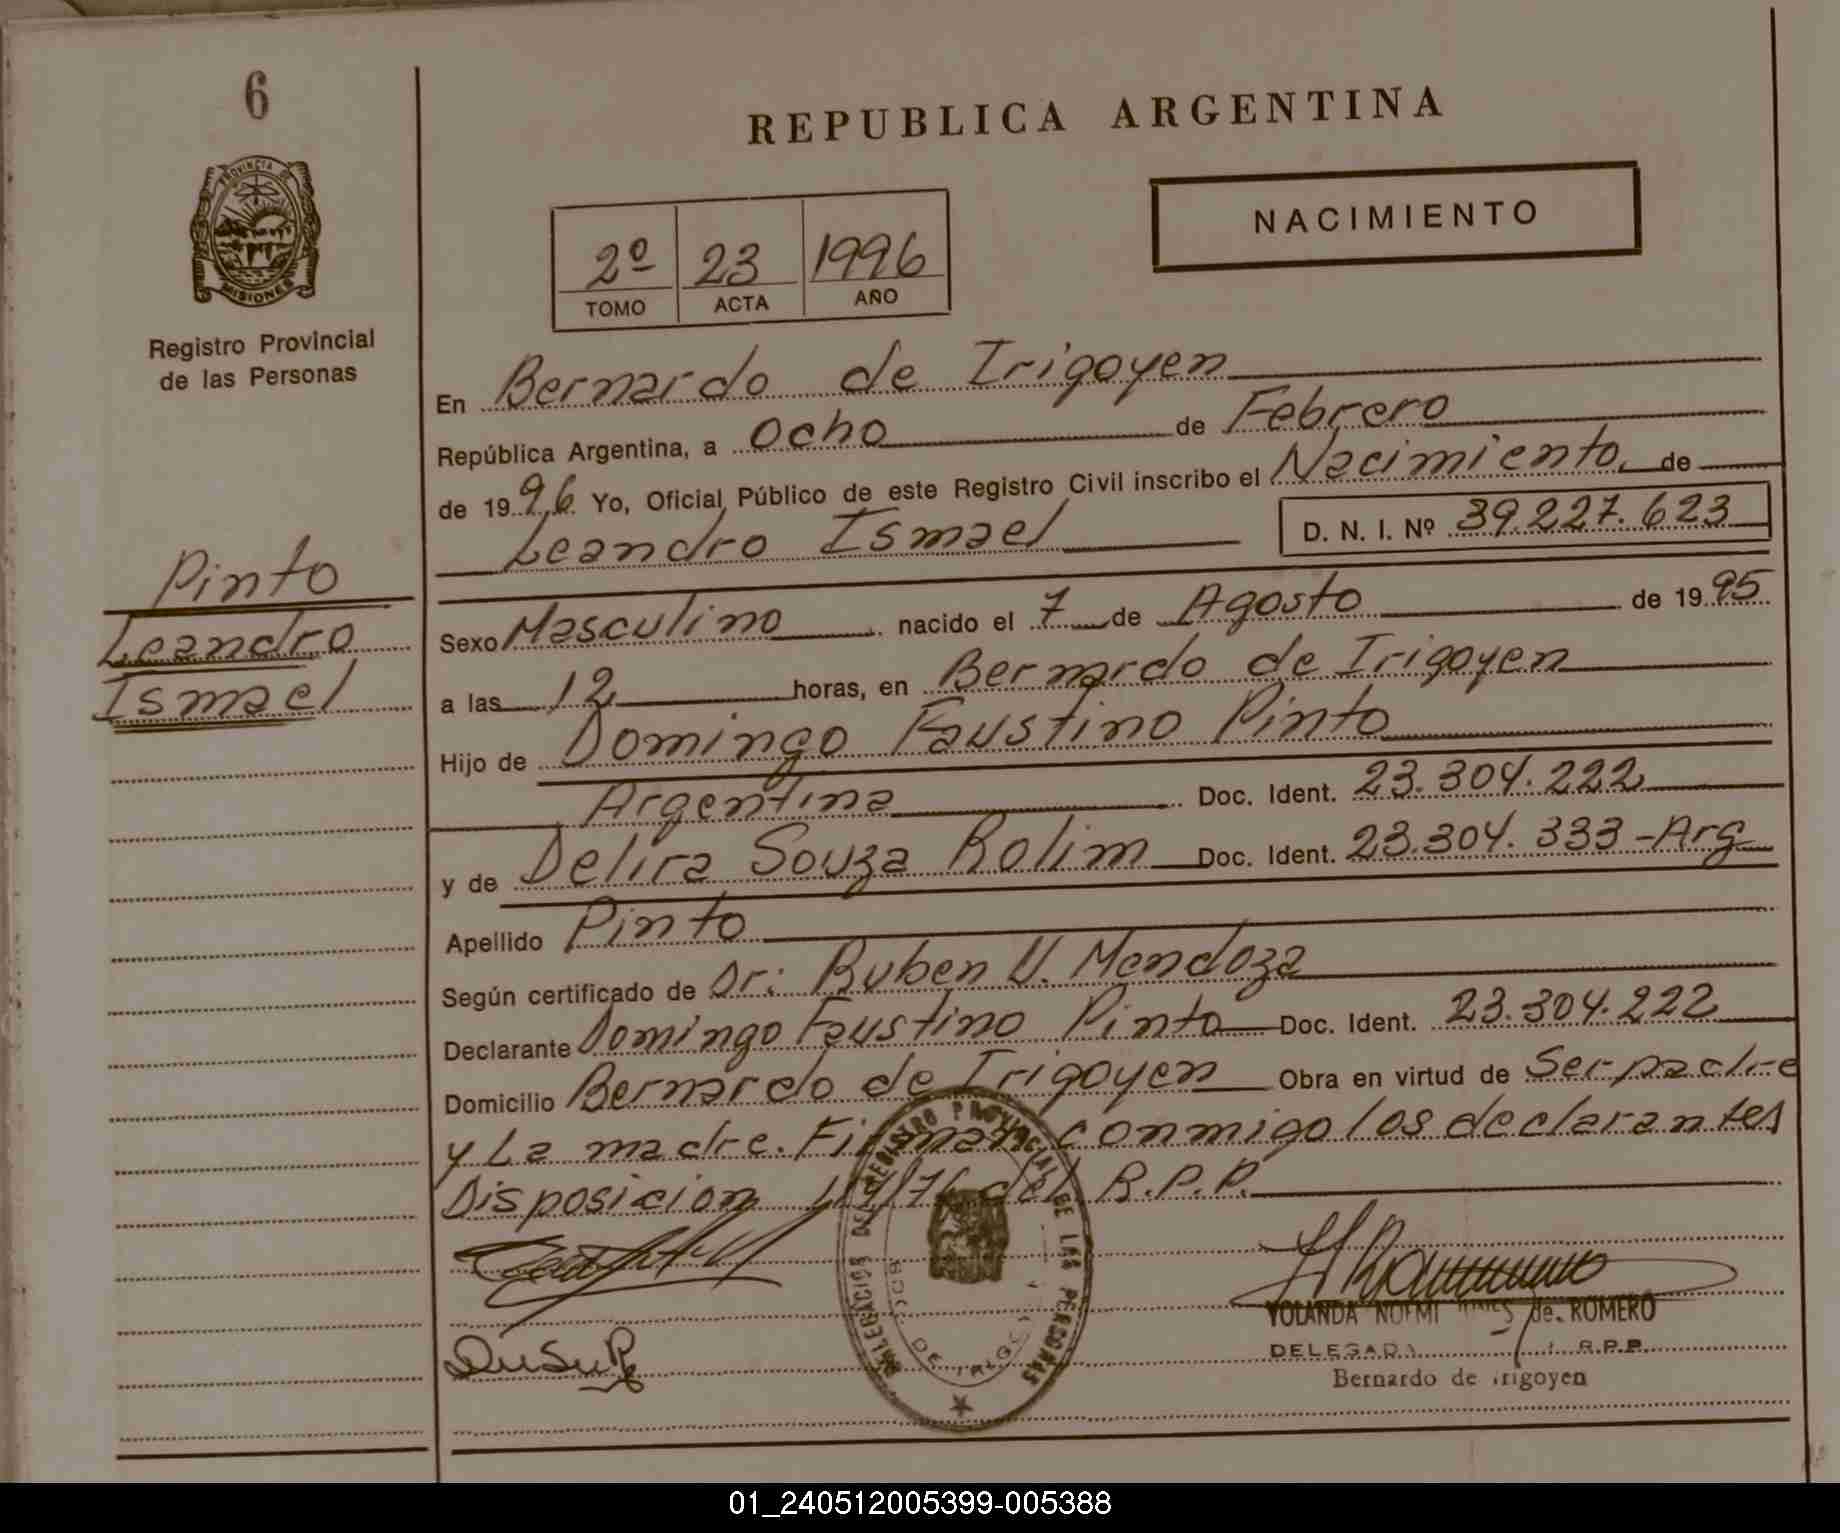 6
PROVINCIA DE
MISIONES
Registro Provincial
de las Personas
Pinto
Leandro
Ismael
REPUBLICA ARGENTINA
NACIMIENTO
2º 23 1996
TOMO ACTA AÑO
En Bernardo de Irigoyen
República Argentina, a Ocho de Febrero
de 1996 Yo, Oficial Público de este Registro Civil inscribo el Nacimiento de
Leandro Ismael D. N. I. Nº 39.227.623
Sexo Masculino nacido el 7 de Agosto de 1995
a las 12 horas, en Bernardo de Irigoyen
Hijo de Domingo Faustino Pinto
Argentina Doc. Ident. 23.304.222
y de Delira Souza Rolim Doc. Ident. 23.304.333-Arg
Apellido Pinto
Según certificado de Dr: Ruben V. Mendoza
Declarante Domingo Faustino Pinto Doc. Ident. 23.304.222
Domicilio Bernardo de Irigoyen Obra en virtud de Ser padre
y La madre. Firman conmigo los declarantes
Disposicion del R.P.P.
DELEGACION DEL REGISTRO PROVINCIAL DE LAS PERSONAS
BDO. DE IRIGOYEN
YOLANDA NOEMI de ROMERO
DELEGADA R.P.P.
Bernardo de Irigoyen
01_240512005399-005388